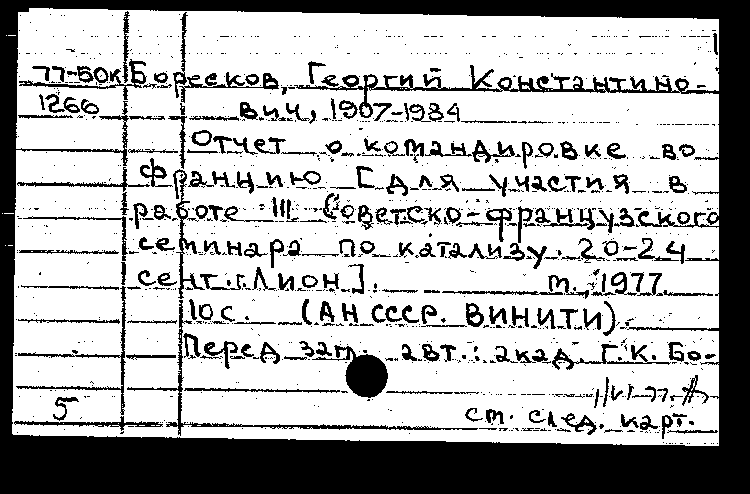 77-50к Боресков, Георгий Константино-
1266 вич, 1907-1984
Отчет о командировке во
Францию [для участия в
работе III Советско-французского
семинара по катализу. 20-24
сент. г. Лион]. м., 1977.
10 с. (АН СССР. ВИНИТИ).
Перед заг. авт.: акад. Г. К. Бо-
5 см. след. карт.